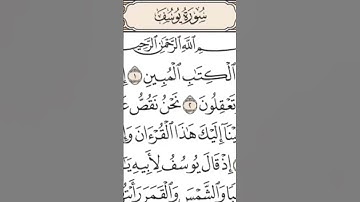 سُورَةُ يُوسُفَ
بِسْمِ ٱللَّهِ ٱلرَّحْمَٰنِ ٱلرَّحِيمِ
ٱلْكِتَٰبِ ٱلْمُبِينِ ١
تَعْقِلُونَ ٢ نَحْنُ نَقُصُّ
هَٰذَا ٱلْقُرْءَانَ
إِذْ قَالَ يُوسُفُ لِأَبِيهِ
وَٱلشَّمْسَ وَٱلْقَمَرَ